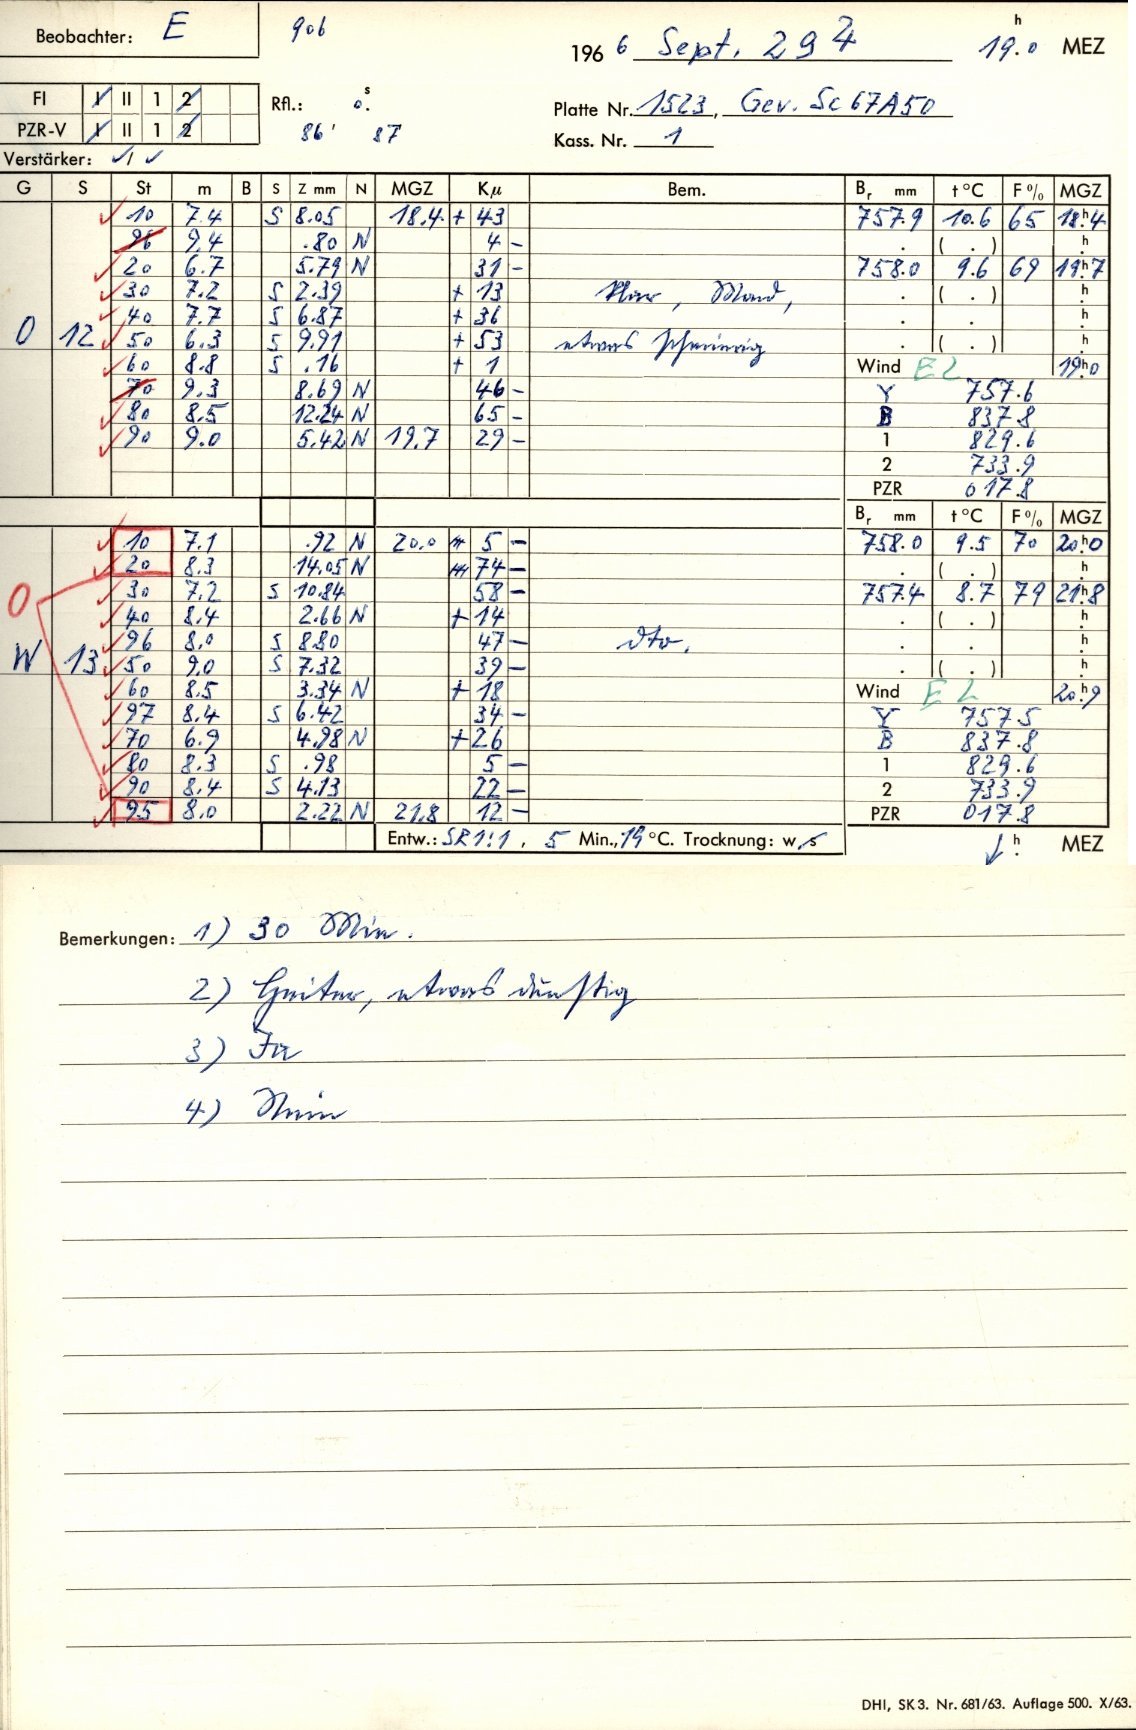 Beobachter: E 906
1966 Sept. 29 24 19.0 h MEZ
FI I II 1 2
PZR-V I II 1 2
Rfl.: 0.s
86' 87
Platte Nr. 1523, Gev. Sc 67A50
Kass. Nr. 1
Verstärker: ✓/✓
G S St m B S Z mm N MGZ Kμ Bem. Br mm t °C F % MGZ
10 7.4 S 8.05 18.4 + 43 757.9 10.6 65 18h4
96 9.4 .80 N 4 – . ( . ) h
20 6.7 5.79 N 31 – 758.0 9.6 69 19h7
30 7.2 S 2.39 + 13 Klar, Mond, . ( . ) h
40 7.7 S 6.87 + 36 . . h
O 12 50 6.3 S 9.91 + 53 etwas schmierig . ( . ) h
60 8.8 S .16 + 1 Wind EL 19h0
70 9.3 8.69 N 46 – Y 757.6
80 8.5 12.24 N 65 – B 837.8
90 9.0 5.42 N 19.7 29 – 1 829.6
2 733.9
PZR 017.8
Br mm t °C F % MGZ
10 7.1 .92 N 20.0 5 – 758.0 9.5 70 20h0
20 8.3 14.05 N 74 – . ( . ) h
O 30 7.2 S 10.84 58 – 757.4 8.7 79 21h8
40 8.4 2.66 N + 14 . ( . ) h
96 8.0 S 8.80 47 – dto. . . h
W 13 50 9.0 S 7.32 39 – . ( . ) h
60 8.5 3.34 N + 18 Wind EL 20h9
97 8.4 S 6.42 34 – Y 757.5
70 6.9 4.98 N + 26 B 837.8
80 8.3 S .98 5 – 1 829.6
90 8.4 S 4.13 22 – 2 733.9
95 8.0 2.22 N 21.8 12 – PZR 017.8
Entw.: SR 1:1, 5 Min., 19 °C. Trocknung: w, s h MEZ
Bemerkungen: 1) 30 Min.
2) Heiter, etwas dunstig
3) Ja
4) Nein
DHI, SK 3. Nr. 681/63. Auflage 500. X/63.